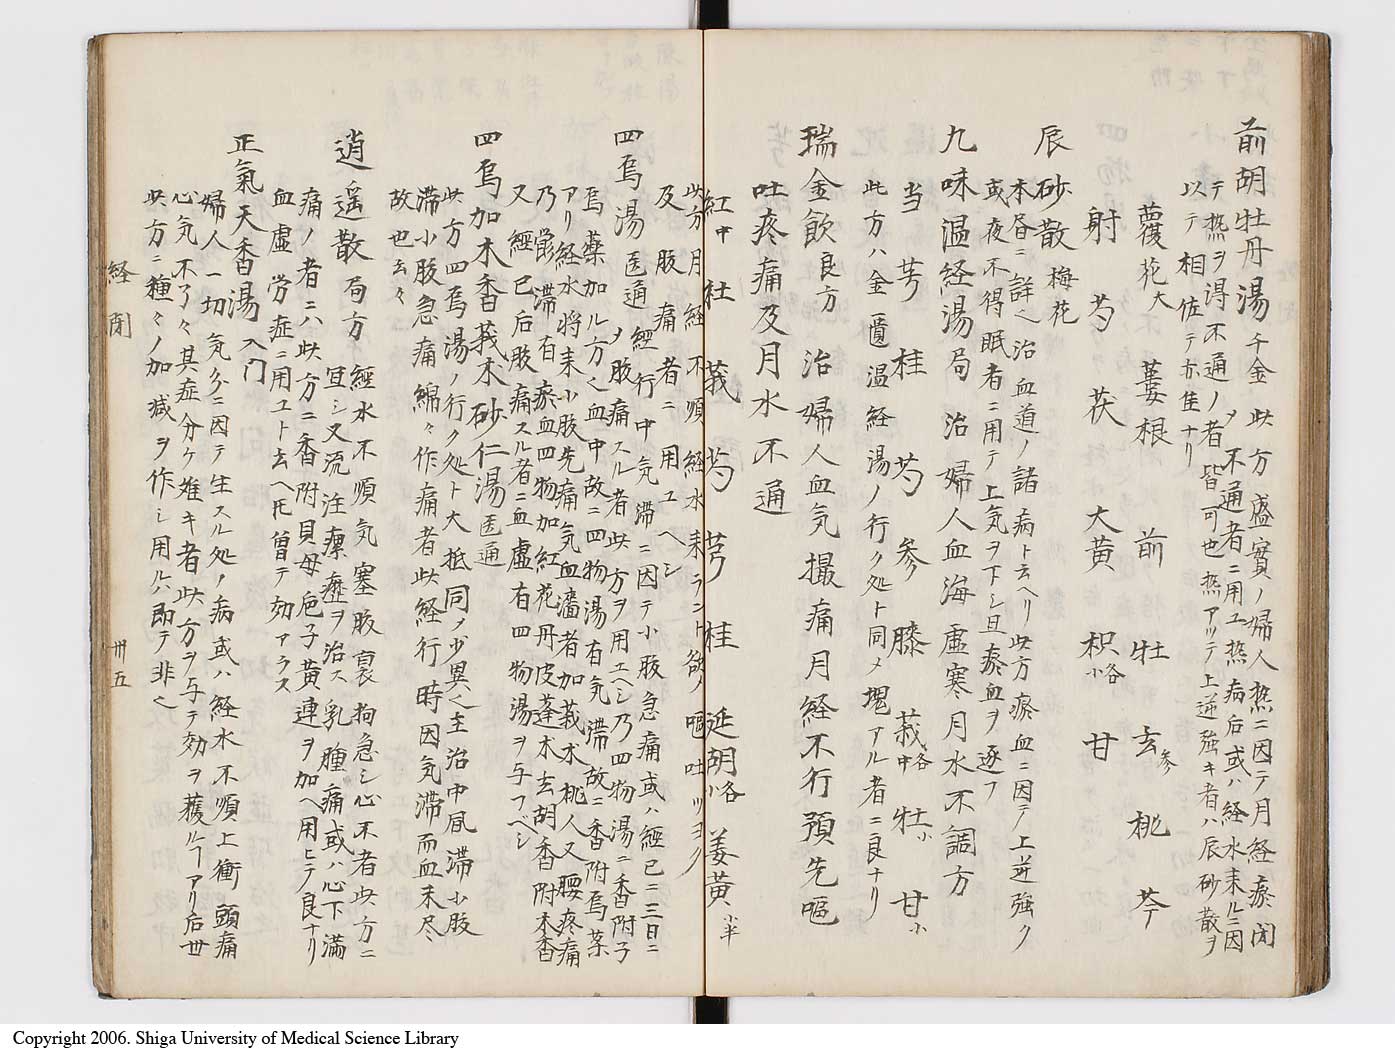 前胡牡丹湯 千金 此方盛實ノ婦人熱ニ因テ月経瘀閉
メ不通者ニ用ユ熱病后或ハ経水来ルニ因
テ熱ヲ得不通ノ者皆可也熱アツテ上逆強キ者ハ辰砂散ヲ
以テ相佐テ亦佳ナリ
蔓花大 蔞根 前 牡 玄参 桃 芩
射 芍 茯 大黄 枳各小 甘
辰砂散 梅花
本昼ニ詳ヘ治血道ノ諸病ト云ヘリ此方瘀血ニ因テノ上逆強ク
或夜不得眠者ニ用テ上気ヲ下シ且瘀血ヲ逐フ
九味温経湯 局 治婦人血海虚寒月水不調方
当 芎 桂 芍 参 膝 莪各中 牡小 甘小
此方ハ金匱温経湯ノ行ク処ト同メ塊アル者ニ良ナリ
瑞金飲 良方 治婦人血気撮痛月経不行預先嘔
吐疼痛及月水不通
紅中 社 莪 芍 芎 桂 延胡各小 姜黄小半
此方月経不順経水来ラント欲ノ嘔吐ツヨク
及腹痛者ニ用ユヘシ
四烏湯 医通 経行中気滞ニ因テ小腹急痛或ハ経已ニ二三日ニ
メ腹痛スル者此方ヲ用エヘシ乃四物湯ニ香附子
烏薬加ル方ヘ血中故ニ四物湯有気滞故ニ香附烏薬
アリ経水将来小腹先痛気血濇者加莪朮桃人又腰疼痛
乃瘀滞有瘀血四物加紅花丹皮蓬朮玄胡香附木香
又経已后腹痛スル者ニ血虚有四物湯ヲ与フベシ
四烏加木香莪朮砂仁湯 医通
此方四烏湯ノ行ク処ト大抵同ノ少異ヘ主治中凬滞小腹
滞小腹急痛綿々作痛者此経行時因気滞而血未尽
故也云々
逍遥散 局方 経水不順気塞腹裏拘急シ心不者此方ニ
宜シ又流注瘰癧ヲ治ス乳腫痛或ハ心下満
痛ノ者ニハ此方ニ香附貝母梔子黄連ヲ加ヘ用ヒテ良ナリ
血虚労症ニ用ユト云ヘ𪜈曽テ効アラス
正氣天香湯 入门
婦人一切気分ニ因テ生スル処ノ病或ハ経水不順上衝頭痛
心気不了々其症分ケ難キ者此方ヲ与テ効ヲ獲ルヿアリ后世
此方ニ種々ノ加減ヲ作シ用ルハ即テ非ヘ
経閉 卅五
Copyright 2006. Shiga University of Medical Science Library